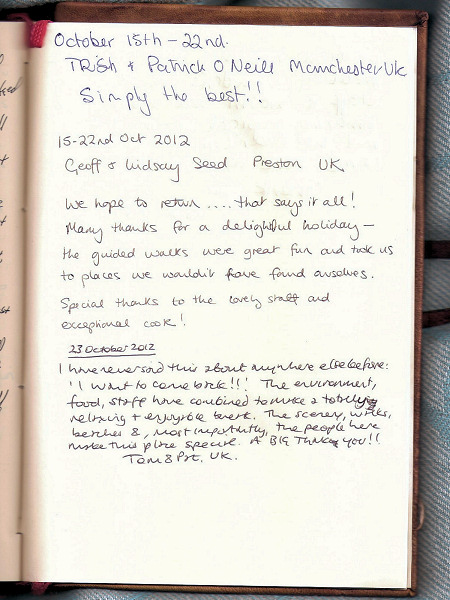 October 15th - 22nd.
TRish & Patrick O Neill Manchester UK
Simply the best!!
15-22nd Oct 2012
Geoff & Lindsay Seed Preston UK
We hope to return .... that says it all!
Many thanks for a delightful holiday -
the guided walks were great fun and took us
to places we wouldn't have found ourselves.
Special thanks to the lovely staff and
exceptional cook!
23 October 2012
I have never said this about anywhere else before:
'I want to come back!!! The environment,
food, staff have combined to make a totally
relaxing + enjoyable week. The scenery, walks,
beaches &, most importantly, the people here
make this place special. A BIG Thank you!!
Tom & Pat, UK.